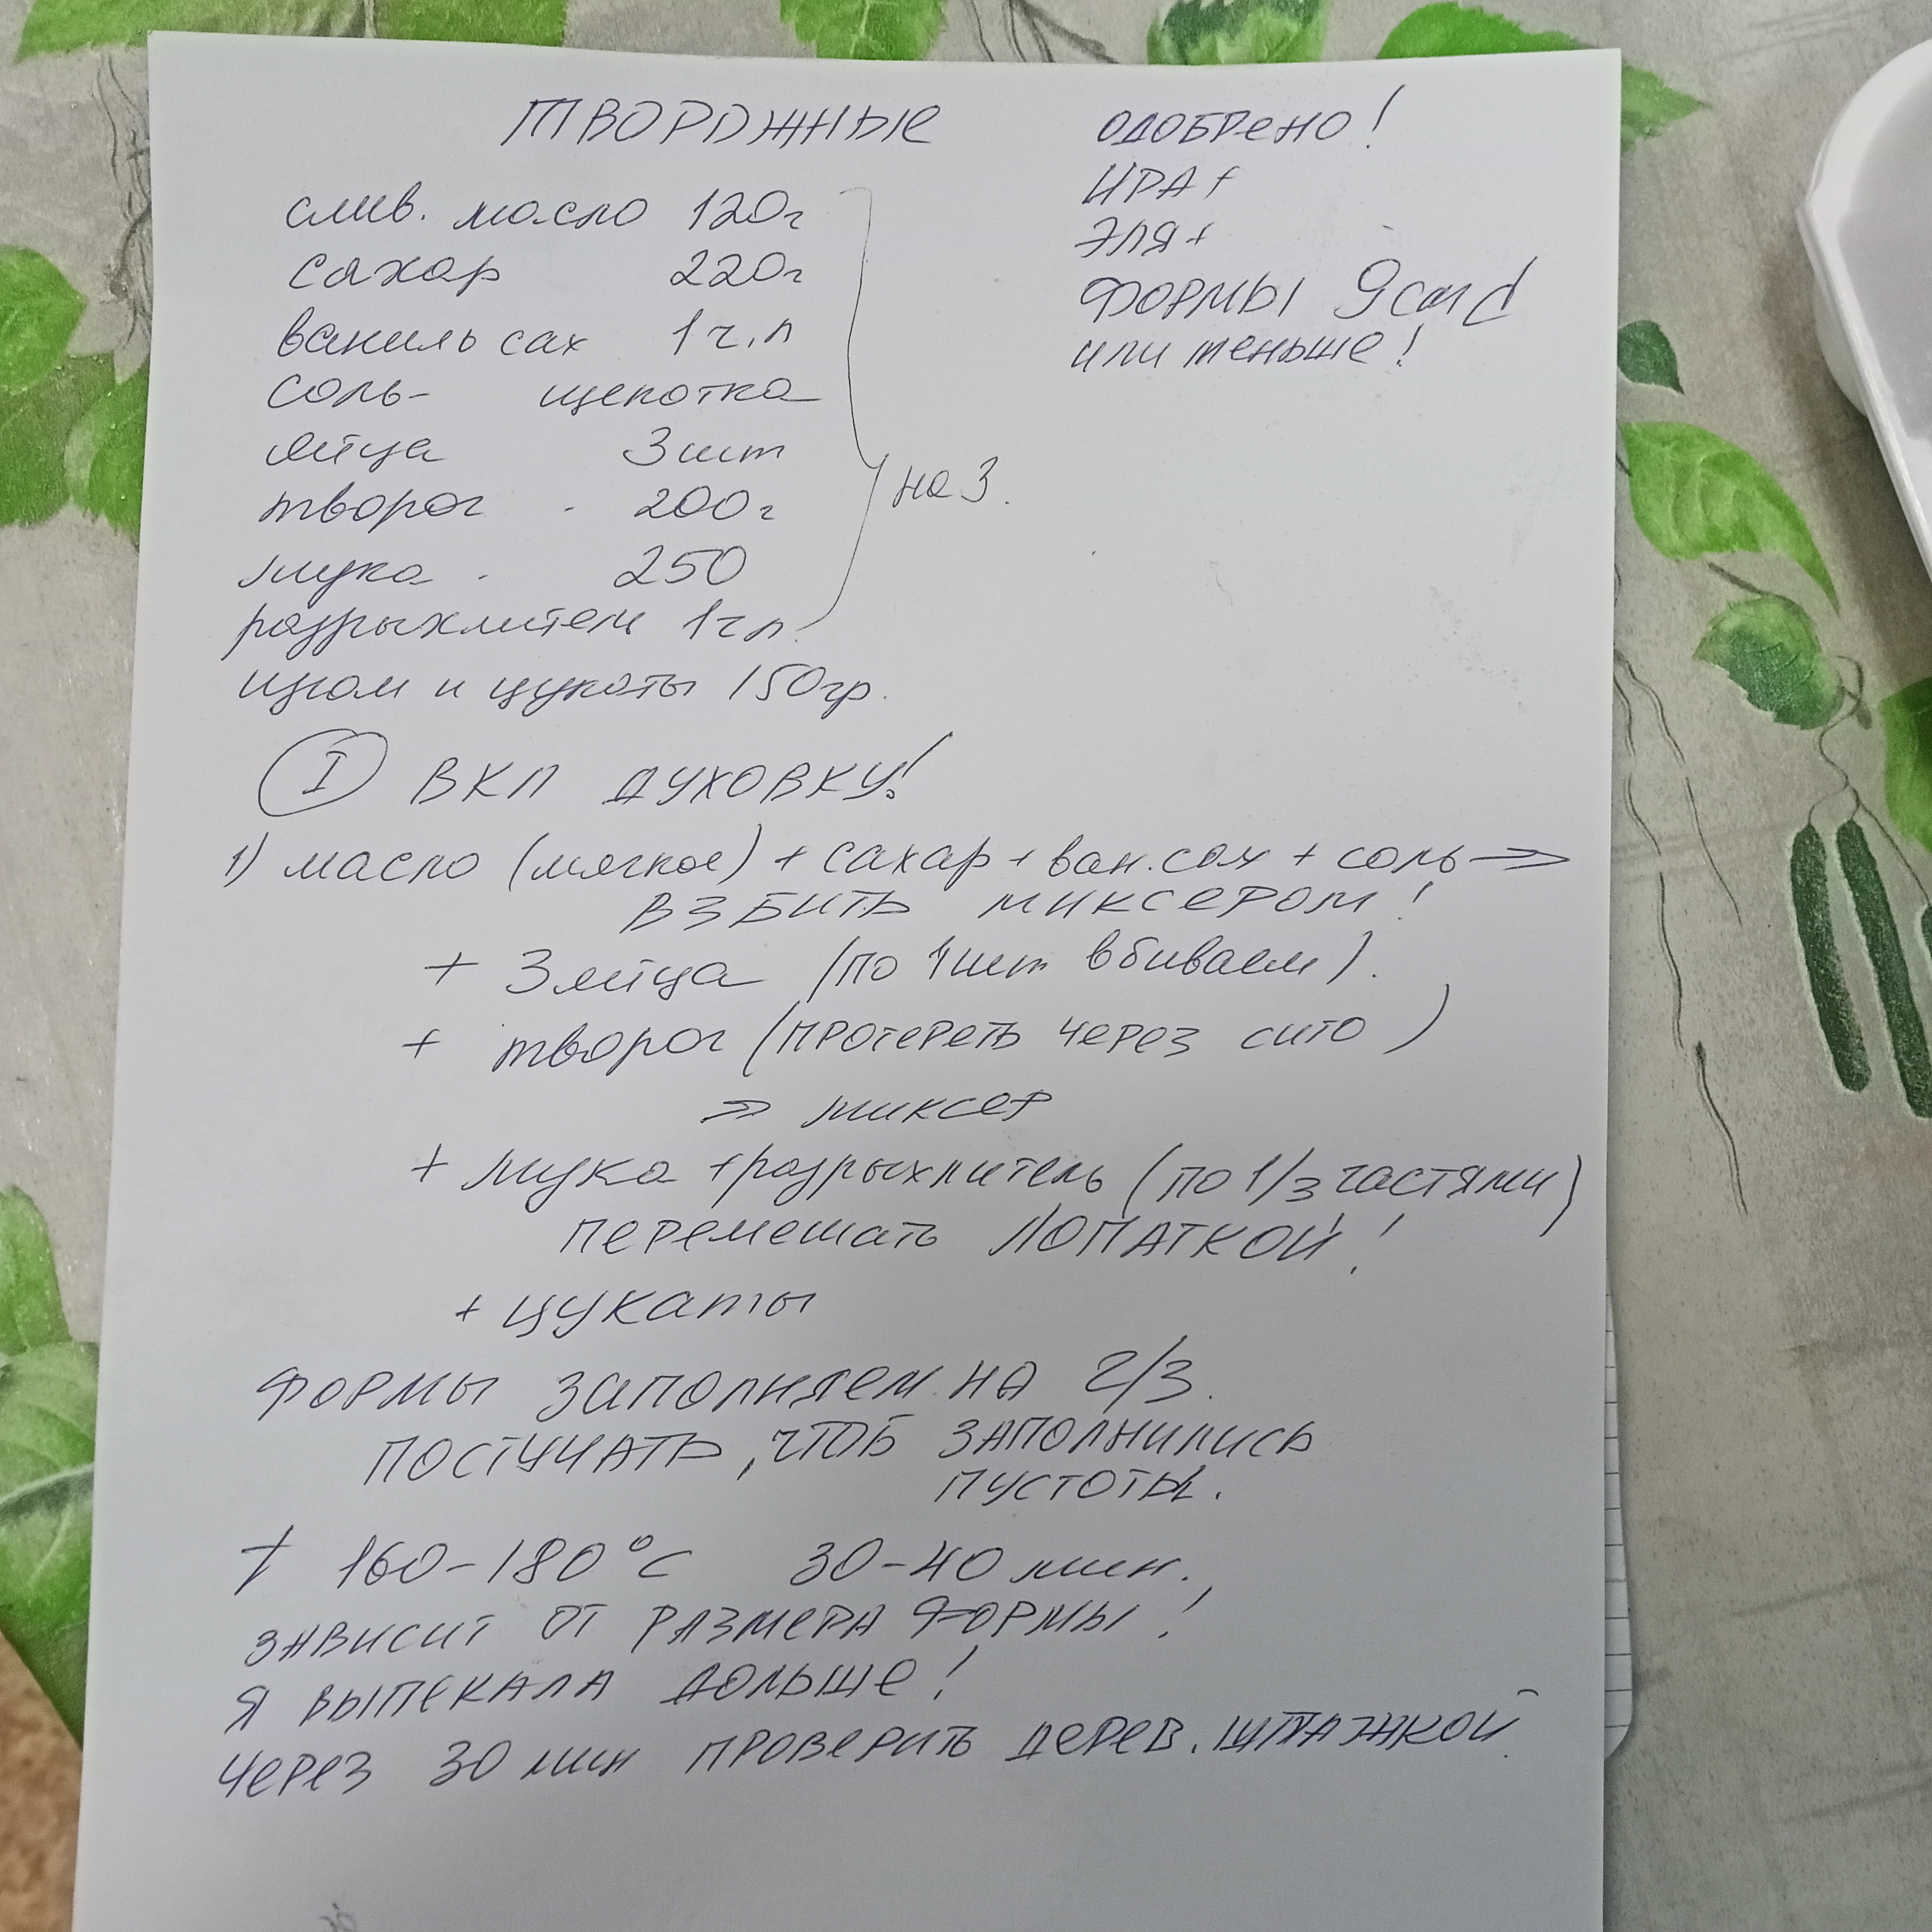 ТВОРОЖНЫЕ
слив. масло 120г
сахар 220г
ваниль сах 1 ч.л
соль- щепотка
яйца 3шт
творог - 200г
мука - 250
разрыхлитель 1чл.
изюм и цукаты 150гр.
на 3.
ОДОБРЕНО!
ИРА+
ЭЛЯ+
ФОРМЫ 9см d
или меньше!
I ВКЛ ДУХОВКУ!
1) масло (мягкое) + сахар + ван.сах + соль →
ВЗБИТЬ МИКСЕРОМ!
+ 3 яйца (по 1шт вбиваем).
+ творог (ПРОТЕРЕТЬ ЧЕРЕЗ СИТО)
→ миксер
+ мука + разрыхлитель (по 1/3 частями)
перемешать ЛОПАТКОЙ!
+ цукаты
ФОРМЫ ЗАПОЛНЯЕМ НА 2/3.
ПОСТУЧАТЬ, ЧТОБ ЗАПОЛНИЛИСЬ
ПУСТОТЫ.
t 160-180°С 30-40 мин.
ЗАВИСИТ ОТ РАЗМЕРА ФОРМЫ!
Я ВЫПЕКАЛА ДОЛЬШЕ!
ЧЕРЕЗ 30 мин ПРОВЕРИТЬ ДЕРЕВ. ШПАЖКОЙ.